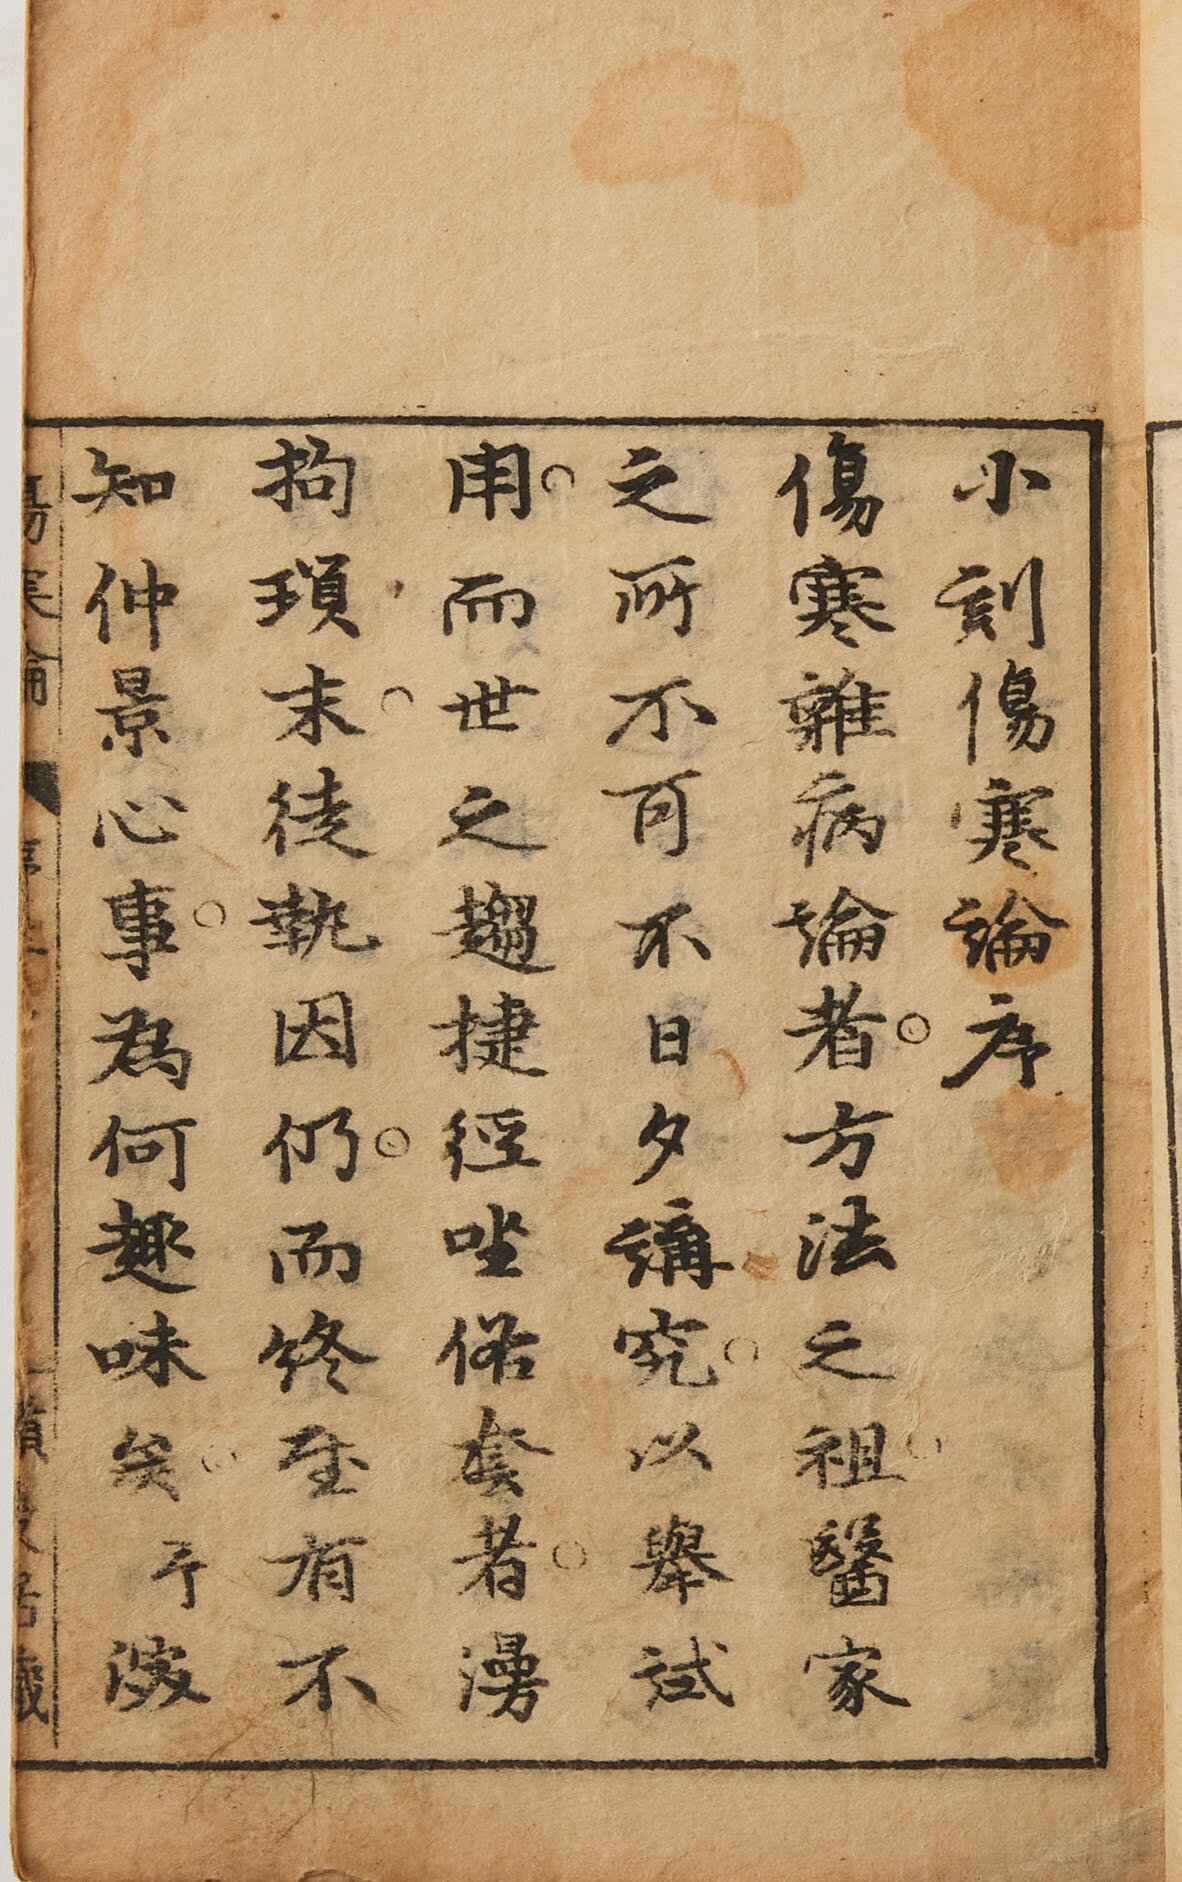 小刻傷寒論序
傷寒雜病論者方法之祖醫家
之所不可不日夕講究以舉試
用而世之趨捷徑坐俗套者漫
拘瑣末徒執因仍而終至有不
知仲景心事為何趣味矣予
傷寒論